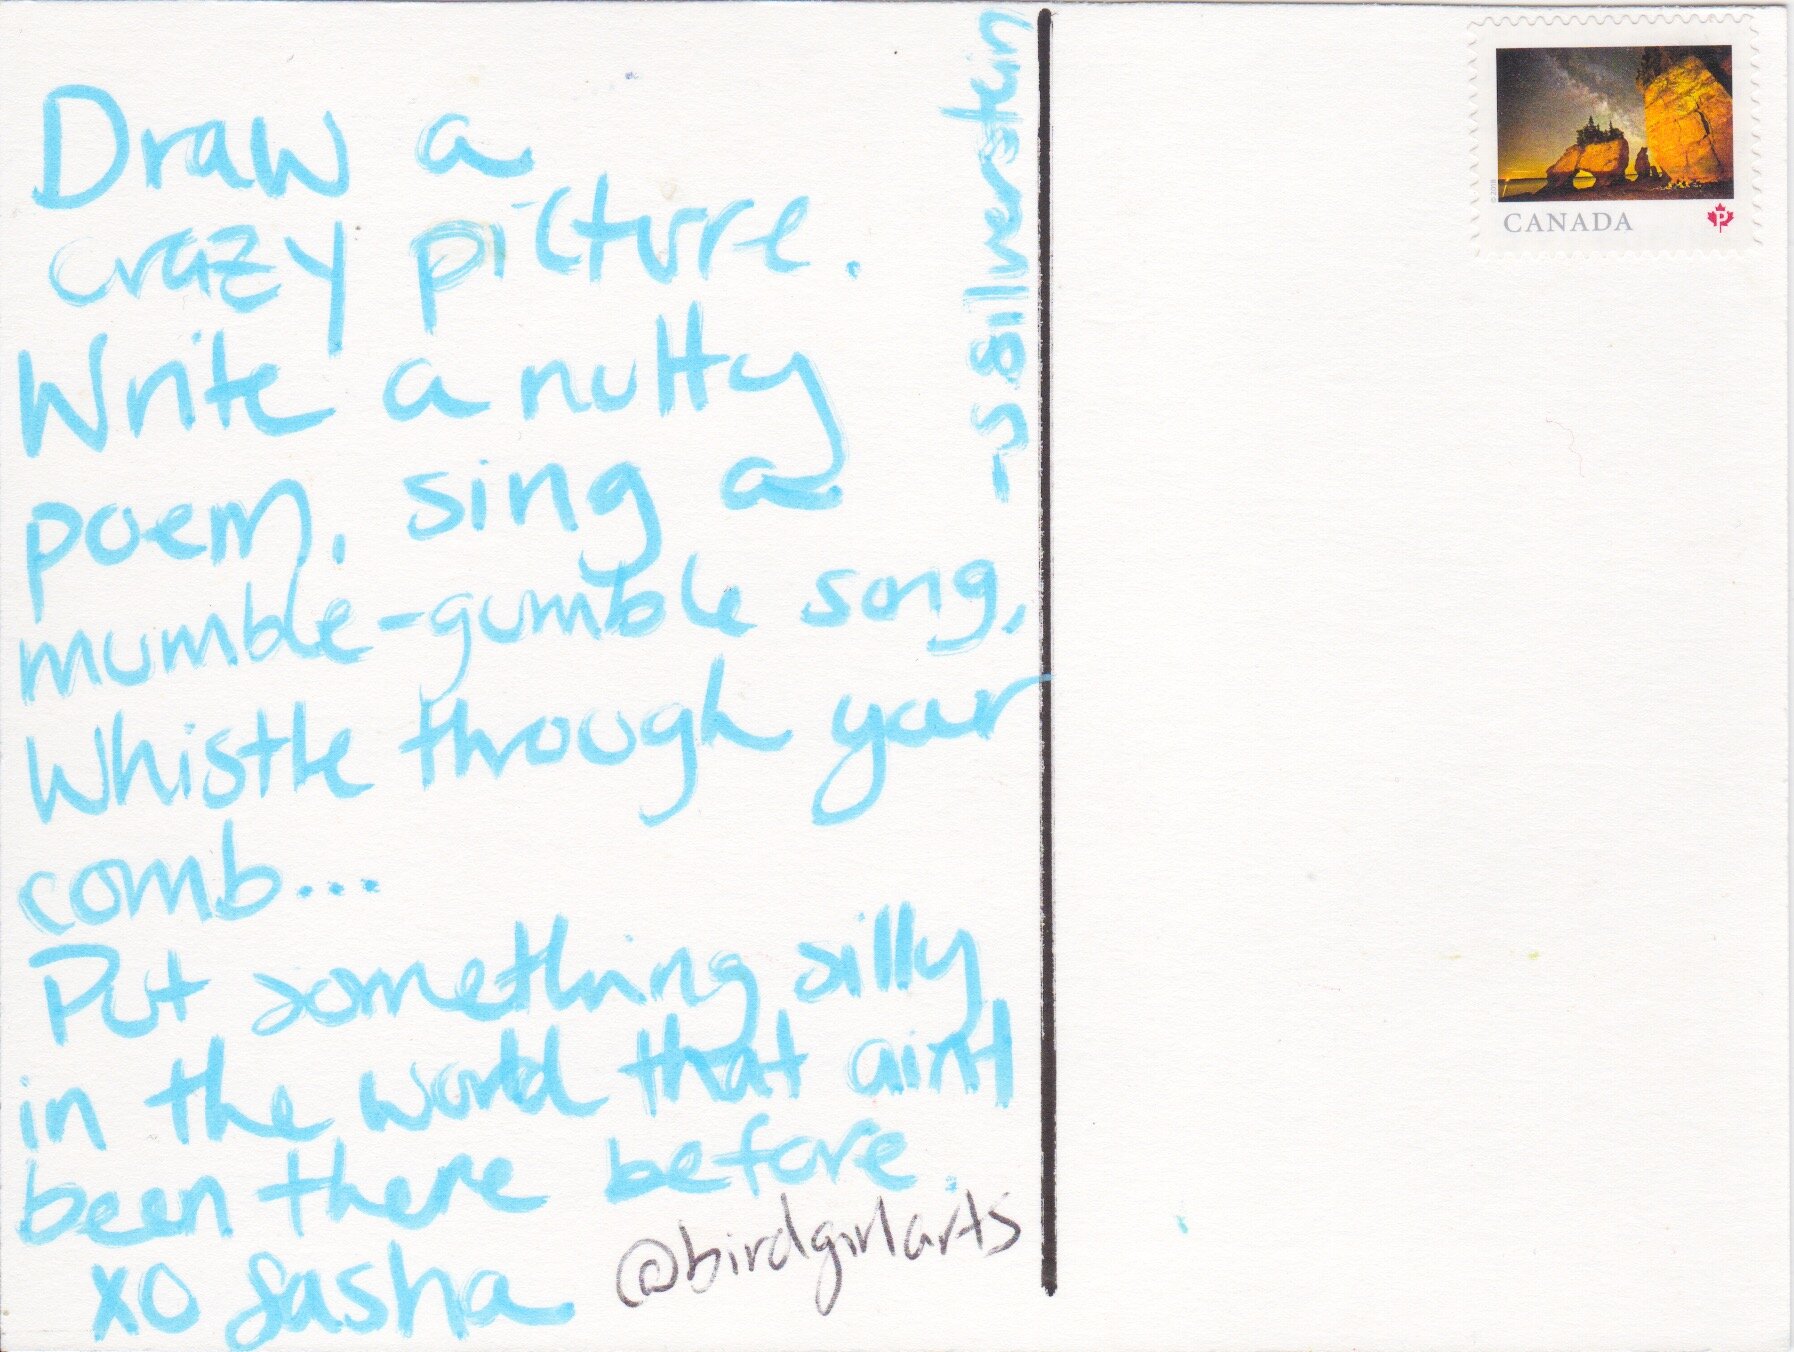 Draw a
crazy picture.
Write a nutty
poem, sing a
mumble-gumble song,
Whistle through your
comb...
Put something silly
in the world that aint
been there before.
xo Sasha
@birdgirlarts
-S Silverstein
CANADA
P